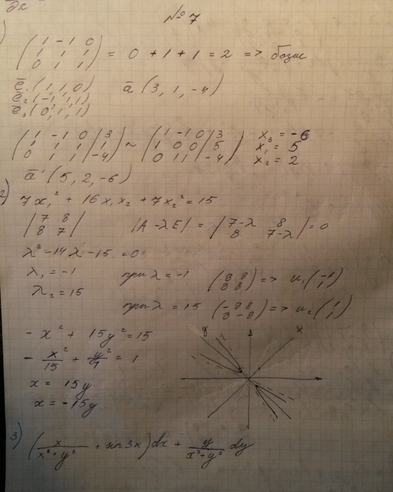 № 7
1)
(1 -1 0
1 1 1
0 1 1) = 0 + 1 + 1 = 2 => базис
e₁(1, 1, 0) a (3, 1, -4)
e₂(-1, 1, 1)
e₃(0, 1, 1)
(1 -1 0 | 3
1 1 1 | 1
0 1 1 | -4) ~ (1 -1 0 | 3
1 0 0 | 5
0 1 1 | -4)
x₃ = -6
x₁ = 5
x₂ = 2
a' (5, 2, -6)
2) 7x₁² + 16x₁x₂ + 7x₂² = 15
|7 8
8 7| |A - λE| = |7-λ 8
8 7-λ| = 0
λ² - 14λ - 15 = 0
λ₁ = -1 при λ = -1 (8 8
8 8) => u₁(-1
1)
λ₂ = 15
при λ = 15 (-8 8
8 -8) => u₂(1
1)
- x² + 15y² = 15
- x²/15 + y²/1 = 1
x = 15y
x = -15y
3) (x/(x²+y²) + sin 3x) dx + y/(x²+y²) dy